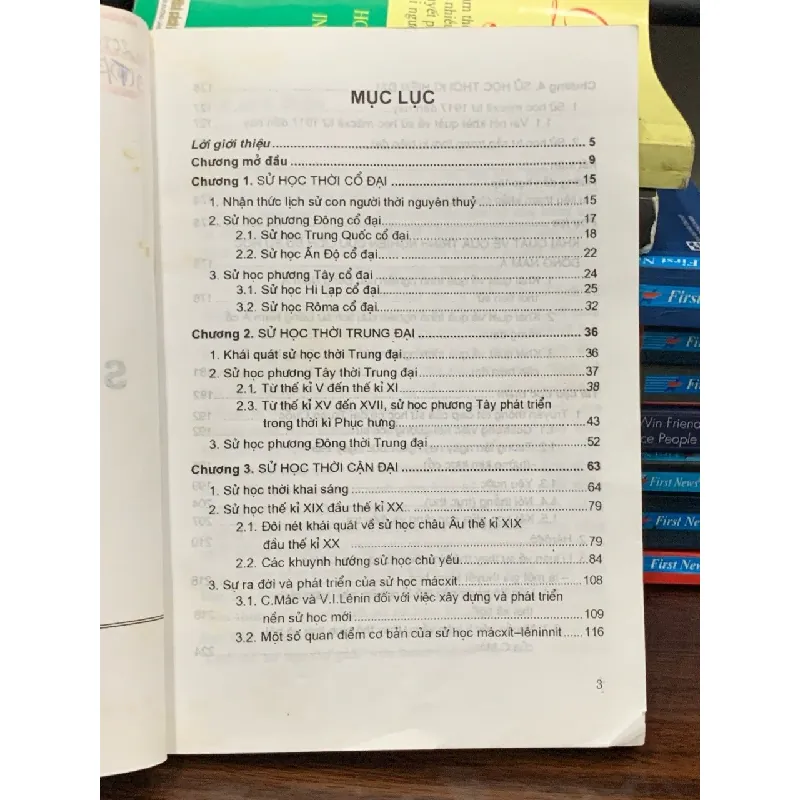 MỤC LỤC
Lời giới thiệu ........ 5
Chương mở đầu ........ 9
Chương 1. SỬ HỌC THỜI CỔ ĐẠI ........ 15
1. Nhận thức lịch sử con người thời nguyên thuỷ ........ 15
2. Sử học phương Đông cổ đại ........ 17
2.1. Sử học Trung Quốc cổ đại ........ 18
2.2. Sử học Ấn Độ cổ đại ........ 22
3. Sử học phương Tây cổ đại ........ 24
3.1. Sử học Hi Lạp cổ đại ........ 25
3.2. Sử học Rôma cổ đại ........ 32
Chương 2. SỬ HỌC THỜI TRUNG ĐẠI ........ 36
1. Khái quát sử học thời Trung đại ........ 36
2. Sử học phương Tây thời Trung đại ........ 37
2.1. Từ thế kỉ V đến thế kỉ XI ........ 38
2.3. Từ thế kỉ XV đến XVII, sử học phương Tây phát triển
trong thời kì Phục hưng ........ 43
3. Sử học phương Đông thời Trung đại ........ 52
Chương 3. SỬ HỌC THỜI CẬN ĐẠI ........ 63
1. Sử học thời khai sáng ........ 64
2. Sử học thế kỉ XIX đầu thế kỉ XX ........ 79
2.1. Đôi nét khái quát về sử học châu Âu thế kỉ XIX
đầu thế kỉ XX ........ 79
2.2. Các khuynh hướng sử học chủ yếu ........ 84
3. Sự ra đời và phát triển của sử học mácxit ........ 108
3.1. C.Mác và V.I.Lênin đối với việc xây dựng và phát triển
nền sử học mới ........ 109
3.2. Một số quan điểm cơ bản của sử học mácxit–lêninnit ........ 116
3
First N
First
Fi
Fir
Win Friend
ce People
First News
First New
First New